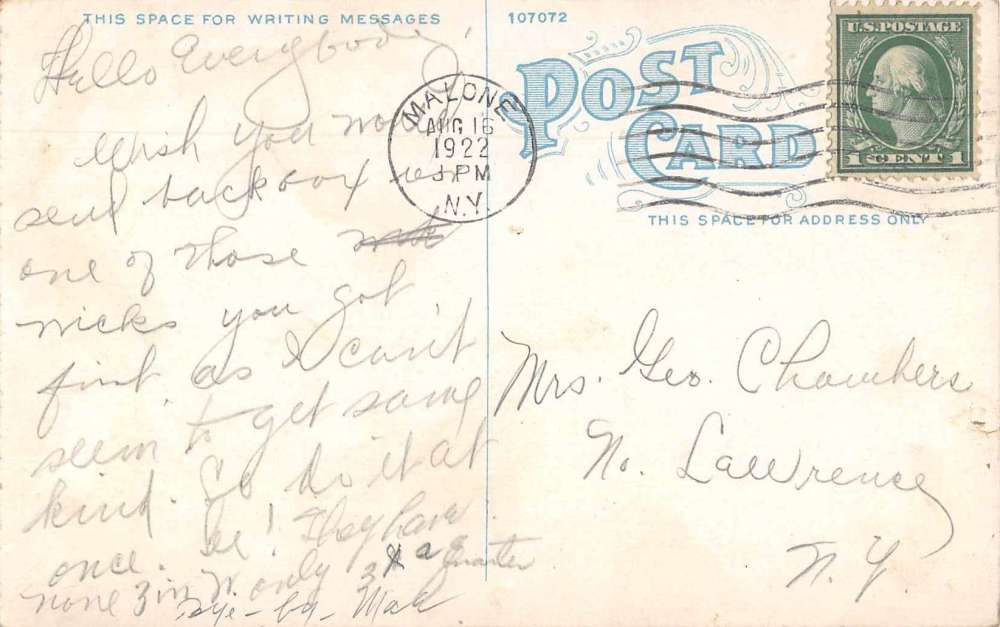 THIS SPACE FOR WRITING MESSAGES
Hello Everybody!
Wish you wou
send back box
one of those
wicks you got
first, as I can't
seem to get same
kind. So do it at
once. They have
none 3 in W. only 3 a quarter
Bye-by-
107072
POST
CARD
MALONE
AUG 16
1922
PM
N.Y.
U.S. POSTAGE
1 CENT 1
THIS SPACE FOR ADDRESS ONLY
Mrs. Geo. Chambers
No. Lawrence
N.Y.